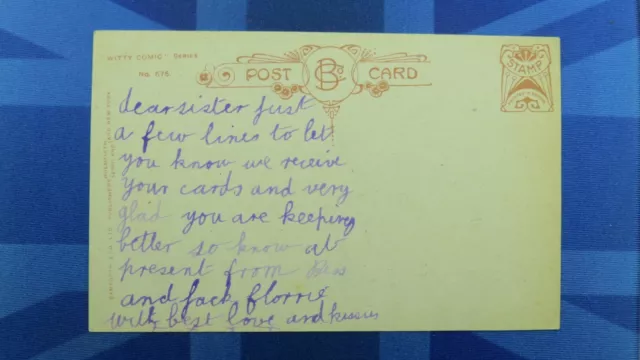 "WITTY COMIC" SERIES
No. 676
POST CARD
STAMP
dear sister just
a few lines to let
you know we receive
your cards and very
glad you are keeping
better so know at
present from
and Jack Florrie
with best love and kisses